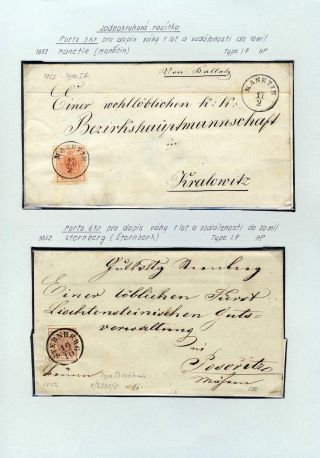 Jednokruhová razítka
Porto 3 kr pro dopis váhy 1 lot a vzdálenosti do 10 mil
1852 Manetin (Manětín) Type I.P HP
1852 - Type Ib
Von Kallatz
MANETIN
17
2
Einer wohllöblichen k: k:
Bezirkshauptmannschaft
in
Kralowitz
MANETIN
17
2
Porto 6 kr pro dopis váhy 1 lot a vzdálenosti do 20 mil
1852 Sternberg (Šternberk) Type I.P HP
Gutsvtty Sternberg
Einer löblichen Fürst
Liechtensteinischen Guts-
verwaltung
in
Posořitz
Mähren
STERNBERG
19
10